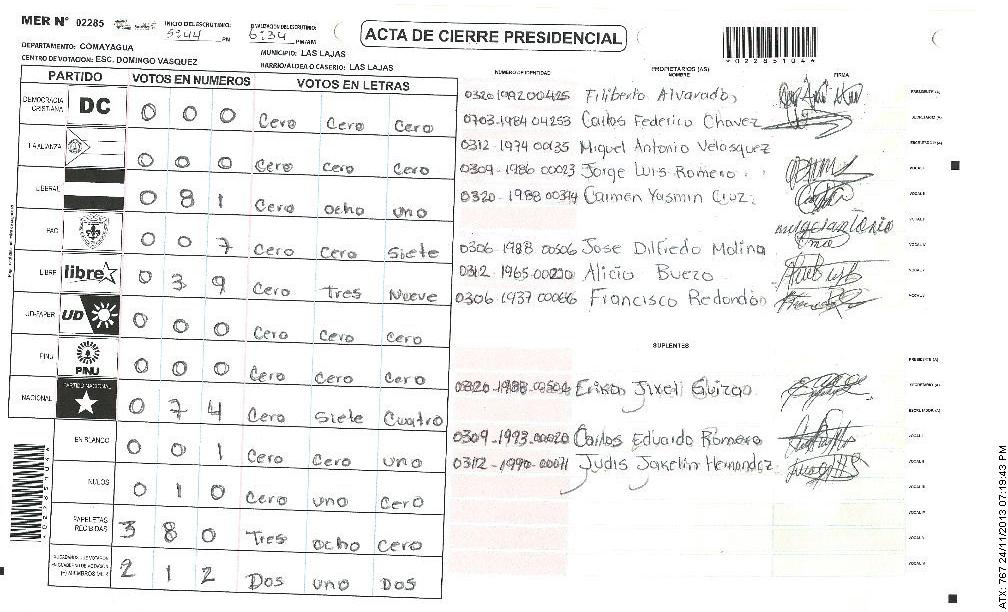 MER Nº 02285
INICIO DEL ESCRUTINIO: 5:44 PM
FINALIZACION DEL ESCRUTINIO: 6:34 PM/AM
ACTA DE CIERRE PRESIDENCIAL
*02285104*
DEPARTAMENTO: COMAYAGUA
MUNICIPIO: LAS LAJAS
CENTRO DE VOTACION: ESC. DOMINGO VASQUEZ
BARRIO/ALDEA O CASERIO: LAS LAJAS
PARTIDO VOTOS EN NUMEROS VOTOS EN LETRAS
NUMERO DE IDENTIDAD PROPIETARIOS (AS) NOMBRE FIRMA
DEMOCRACIA CRISTIANA DC 0 0 0 Cero Cero Cero
LA ALIANZA 0 0 0 Cero Cero Cero
LIBERAL 0 8 1 Cero ocho uno
PAC 0 0 7 Cero Cero Siete
LIBRE libre 0 3 9 Cero Tres Nueve
UD-FAPER UD 0 0 0 Cero Cero Cero
PINU PINU 0 0 0 Cero Cero Cero
NACIONAL PARTIDO NACIONAL 0 7 4 Cero Siete Cuatro
EN BLANCO 0 0 1 Cero Cero uno
NULOS 0 1 0 Cero uno Cero
PAPELETAS RECIBIDAS 3 8 0 Tres ocho Cero
(+) MIEMBROS MER 2 1 2 Dos uno Dos
0320 1992 00425 Filiberto Alvarado,
0703-1984 04253 Carlos Federico Chavez
0312-1974 00135 Miguel Antonio Velasquez
0309-1986 00023 Jorge Luis Romero
0320-1988 00394 Carmen Yasmin Cruz
0306-1988 00506 Jose Dilfiedo Molina
0312 1965-00220 Alicio Buezo
0306-1937 00066 Francisco Redondo
SUPLENTES
0320-1988-00504 Erika Jixeli Guizao
0309-1993-00020 Carlos Eduardo Romero
0312-1990-00071 Judis Jakelin Hernandez
ATX: 767 24/11/2013 07:19:43 PM